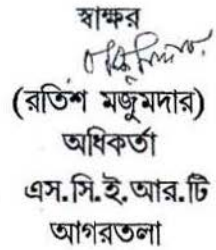 স্বাক্ষর
(রতিশ মজুমদার)
অধিকর্তা
এস.সি.ই.আর.টি
আগরতলা